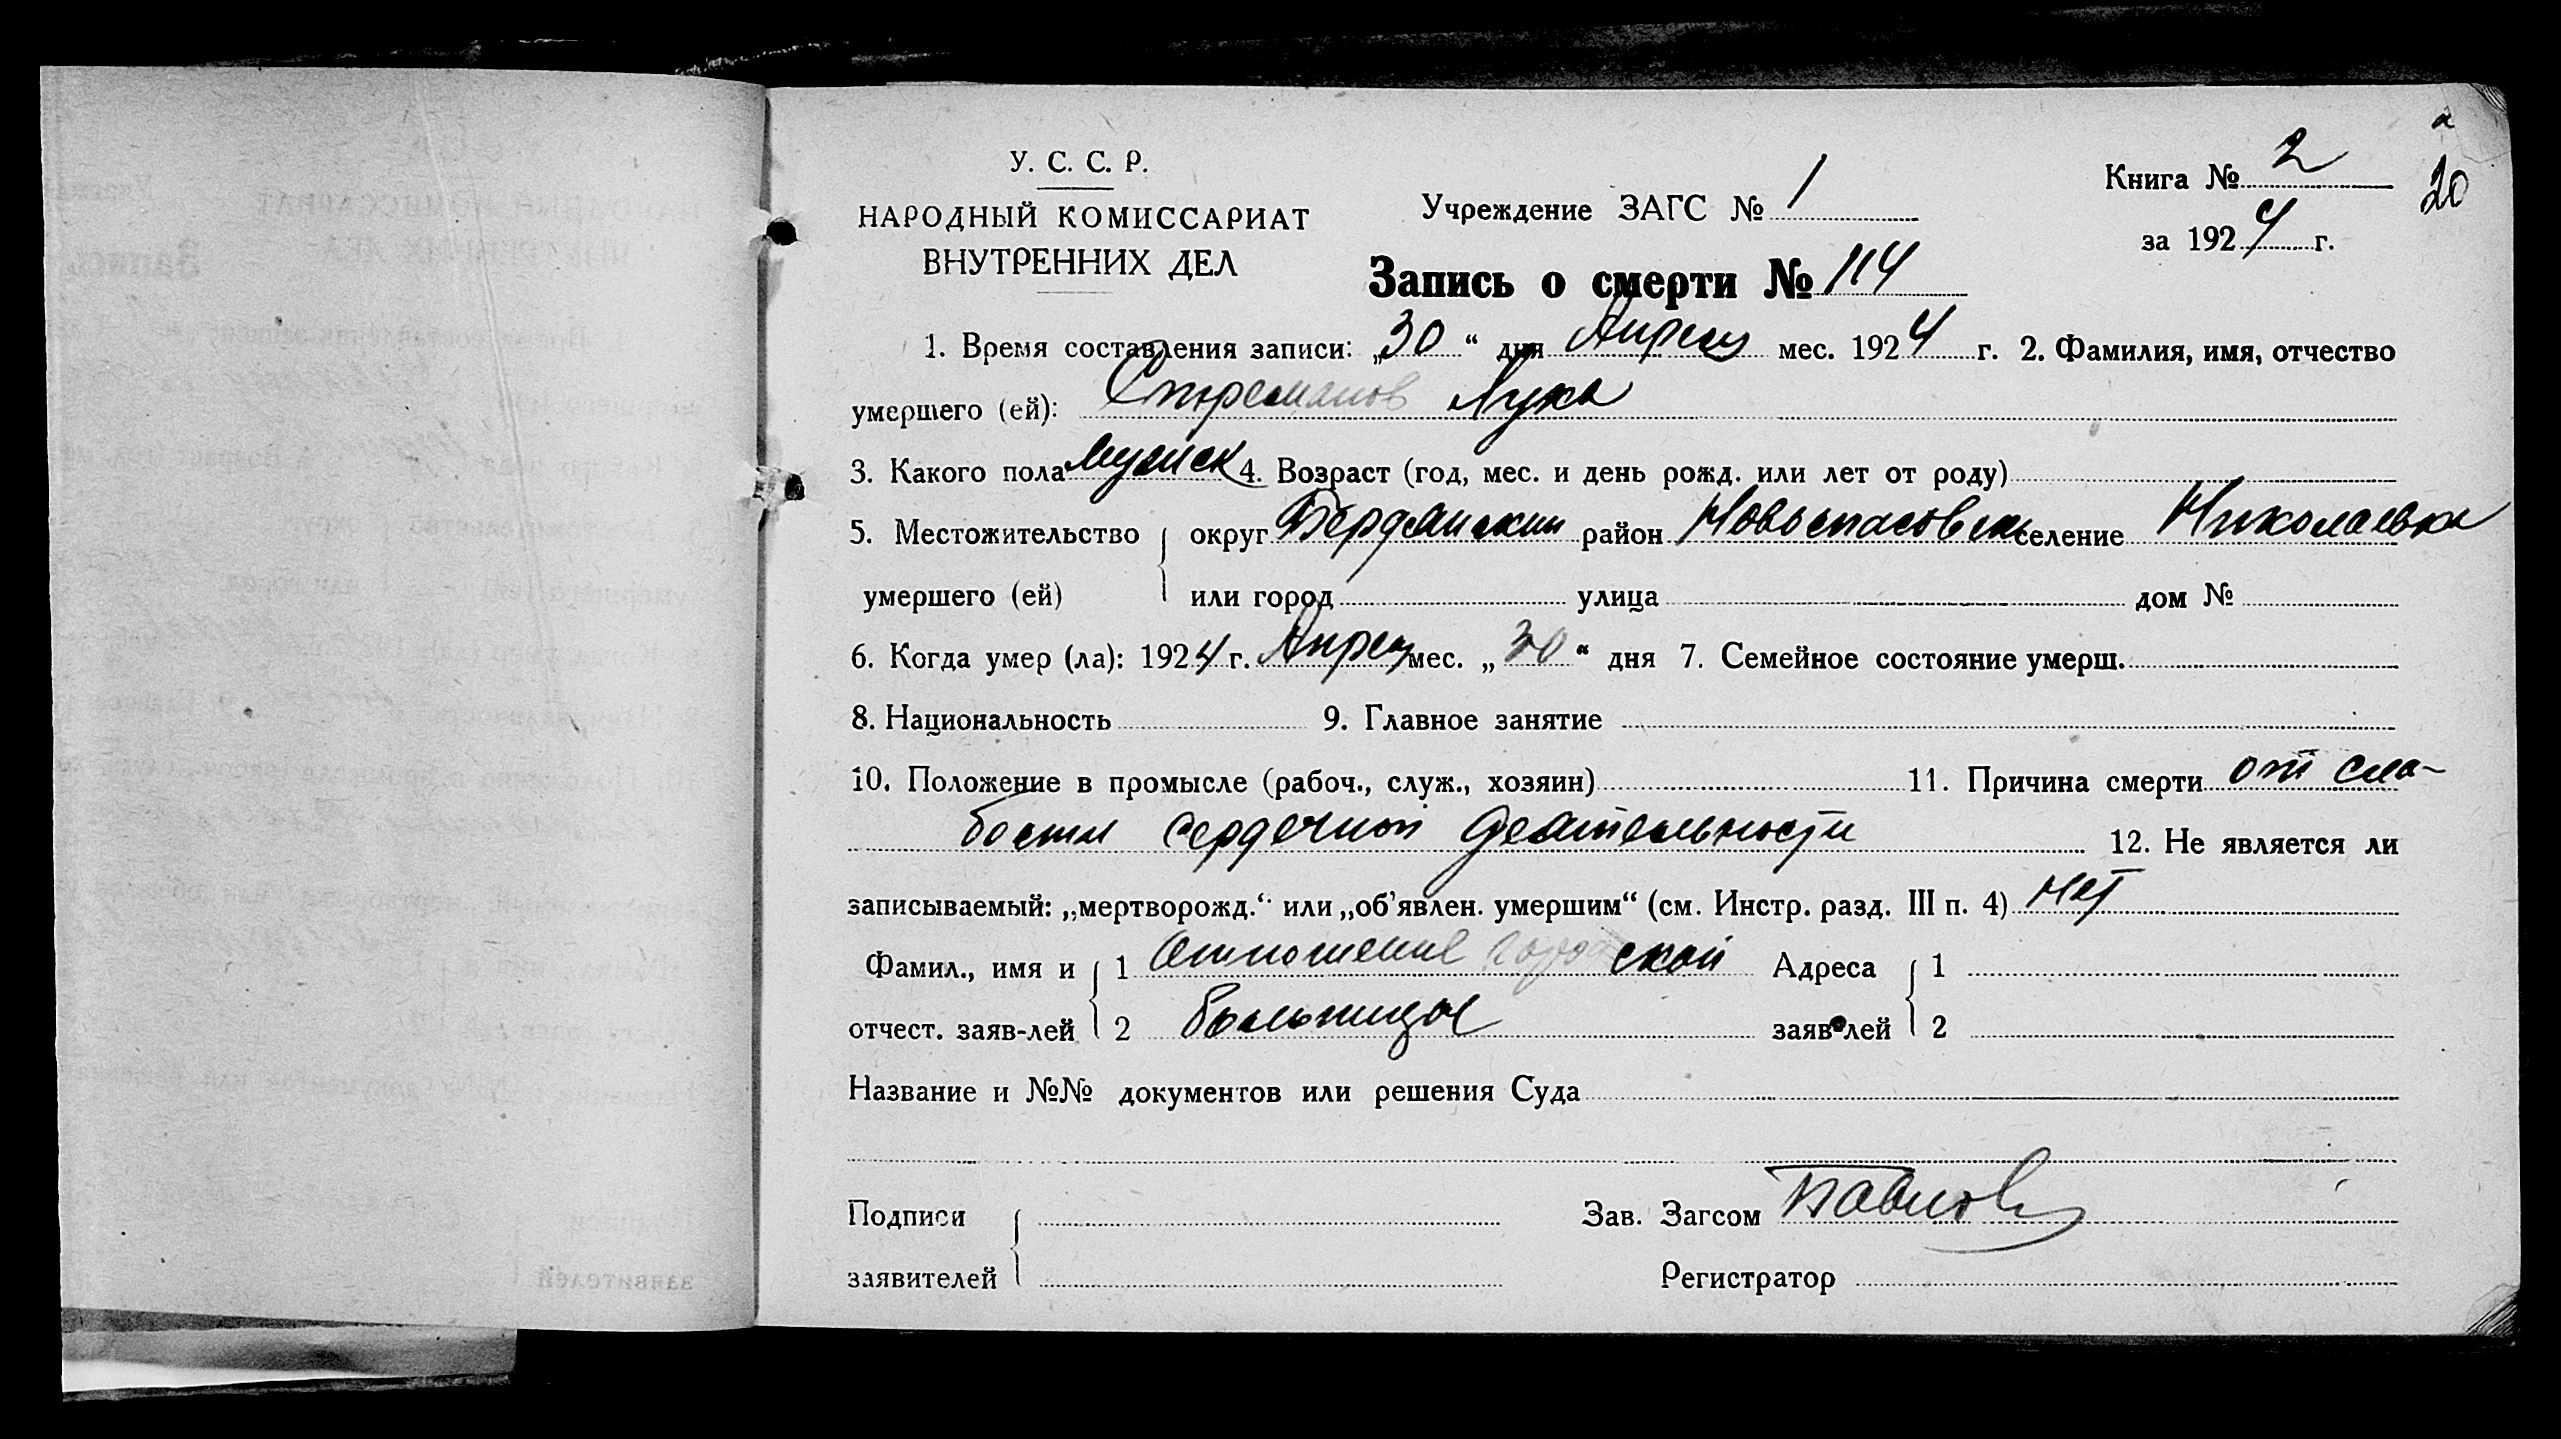 У. С. С. Р.
НАРОДНЫЙ КОМИССАРИАТ
ВНУТРЕННИХ ДЕЛ
Учреждение ЗАГС № 1
Книга № 2
20
за 1924 г.
Запись о смерти № 114
1. Время составления записи: „30“ дня Апреля мес. 1924 г. 2. Фамилия, имя, отчество
умершего (ей): Лука
3. Какого пола мужск 4. Возраст (год, мес. и день рожд. или лет от роду)
5. Местожительство округ Бердянский район Новоспасовск селение Николаевка
умершего (ей) или город улица дом №
6. Когда умер (ла): 1924 г. Апреля мес. „30“ дня 7. Семейное состояние умерш.
8. Национальность 9. Главное занятие
10. Положение в промысле (рабоч., служ., хозяин) 11. Причина смерти от сла-
бости сердечной деятельности 12. Не является ли
записываемый: „мертворожд.“ или „об'явлен. умершим“ (см. Инстр. разд. III п. 4) нет
Фамил., имя и 1 Отношение городской Адреса 1
отчест. заяв-лей 2 больницы заяв-лей 2
Название и №№ документов или решения Суда
Подписи Зав. Загсом
заявителей Регистратор